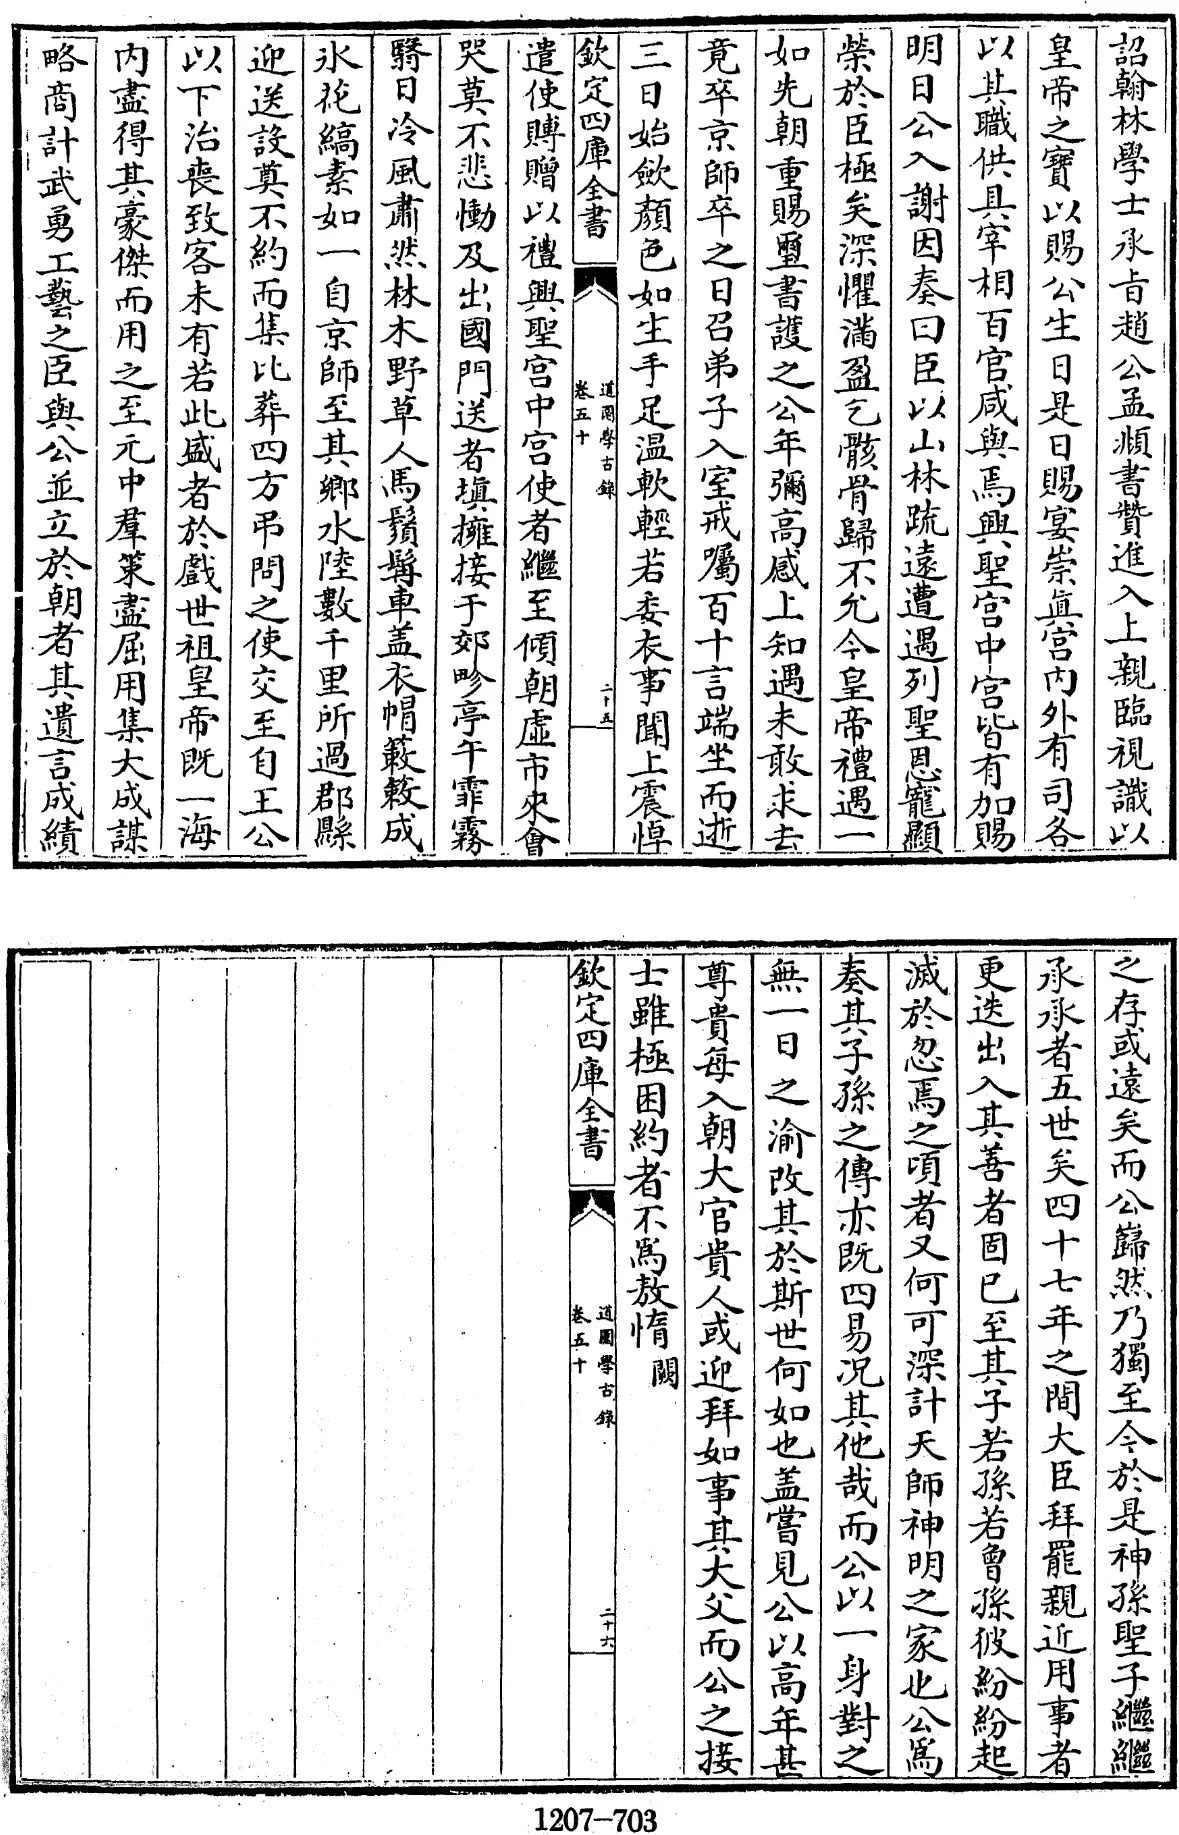 詔翰林學士承旨趙公孟頫書贊進入上親臨視識以
皇帝之寳以賜公生日是日賜宴崇真宫内外有司各
以其職供具宰相百官咸與焉興聖宫中宫皆有加賜
明日公入謝因奏曰臣以山林疏遠遭遇列聖恩寵顯
榮於臣極矣深懼滿盈乞骸骨歸不允今皇帝禮遇一
如先朝重賜璽書護之公年彌高感上知遇未敢求去
竟卒京師卒之日召弟子入室戒囑百十言端坐而逝
三日始斂顔色如生手足温軟輕若委衣事聞上震悼
欽定四庫全書
道園學古錄
卷五十
二十五
遣使賻贈以禮興聖宫中宫使者繼至傾朝虛市來會
哭莫不悲慟及出國門送者塡擁接于郊畛亭午霏霧
翳日冷風肅然林木野草人馬鬚髯車盖衣帽簌簌成
氷花縞素如一自京師至其鄉水陸數千里所過郡縣
迎送設奠不約而集比葬四方弔問之使交至自王公
以下治喪致客未有若此盛者於戲世祖皇帝既一海
内盡得其豪傑而用之至元中羣策盡屈用集大成謀
略商計武勇工藝之臣與公並立於朝者其遺言成績
之存或遠矣而公巋然乃獨至今於是神孫聖子繼繼
承承者五世矣四十七年之間大臣拜罷親近用事者
更迭出入其善者固已至其子若孫若曾孫彼紛紛起
滅於忽焉之頃者又何可深計天師神明之家也公爲
奏其子孫之傳亦既四易况其他哉而公以一身對之
無一日之渝改其於斯世何如也盖嘗見公以高年甚
尊貴每入朝大官貴人或迎拜如事其大父而公之接
士雖極困約者不爲敖惰 闕
欽定四庫全書
道園學古錄
卷五十
二十六
1207-703